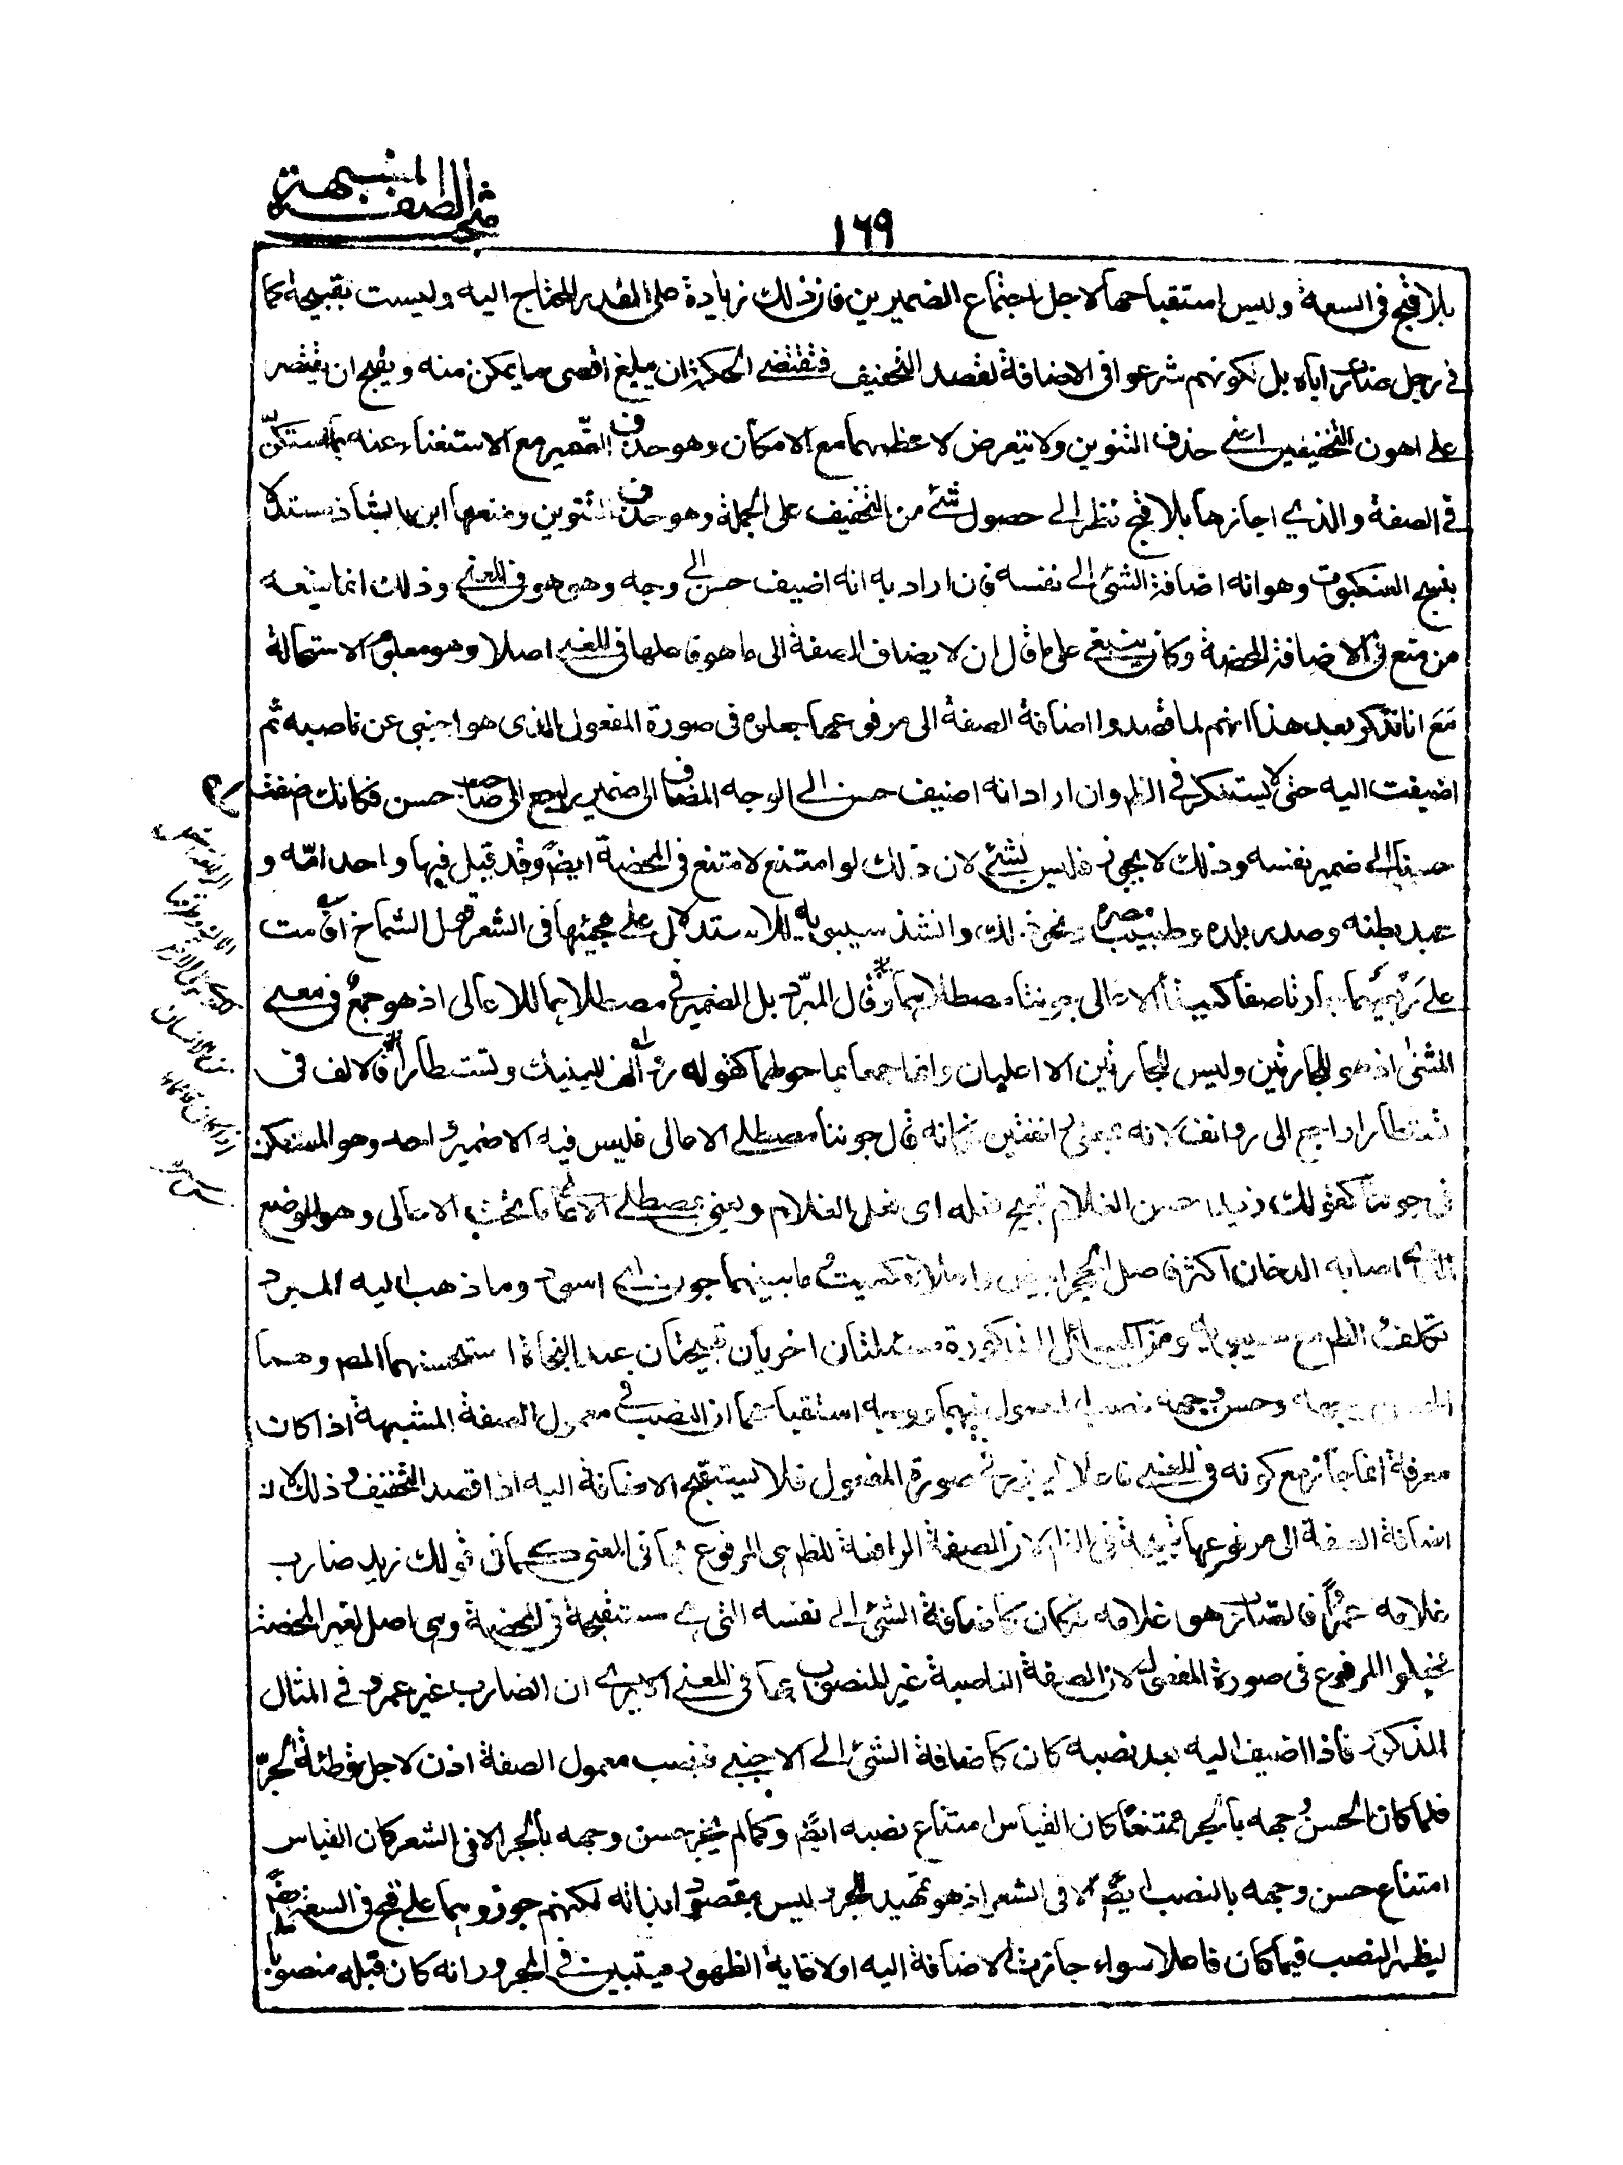 مبحث الصفة المشبهة
١٦٩
بلا قبح فى السعة وليس استقباحها لاجل اجتماع الضميرين فان ذلك زيادة على القدر المحتاج اليه وليست بقبيحة كما
فى رجل ضارب اياه بل لكونهم شرعوا فى الاضافة لقصد التخفيف فتقتضى الحكمة ان يبلغ اقصى ما يمكن منه ويقبح ان يقتصر
على اهون التخفيفين اعنى حذف التنوين ولا يتعرض لاعظمهما مع الامكان وهو حذف الضمير مع الاستغناء عنه بما استكن
فى الصفة والذى اجازها بلا قبح نظر الى حصول شئ من التخفيف على الجملة وهو حذف التنوين ومنعها ابن بابشاذ مستدلا
بنسج العنكبوت وهو انه اضافة الشئ الى نفسه فان اراد به انه اضيف حسن الى وجه وهو هو فى المعنى وذلك انما يمنعه
من منع فى الاضافة المحضة وكان ينبغى على ما قال ان لا يضاف الصفة الى ما هو فاعلها فى المعنى اصلا وهو معلوم الاستحالة
مع انا نذكر بعد هذا انهم لما قصدوا اضافة الصفة الى مرفوعها جعلوه فى صورة المفعول الذى هو اجنبى عن ناصبه ثم
اضيفت اليه حتى لا يستنكر فى الظ وان اراد انه اضيف حسن الى الوجه المضاف الى ضمير راجع الى صاحب حسن فكانك ضفت
حسنا الى ضمير نفسه وذلك لا يجوز فليس بشئ لان ذلك لو امتنع لامتنع فى المحضة ايضا وقد قيل فيها واحد امّه و
عبد بطنه وصدر بلده وطبيب مصره ونحو ذلك وانشد سيبويه للاستدلال على مجيئها فى الشعر قول الشماخ اقامت
على ربعيهما جارتا صفا كميتا الاعالى جونتا مصطلاهما وقال المبرد بل الضمير فى مصطلاهما للاعالى اذ هو جمع فى معنى
المثنى اذ هو للجارتين وليس للجارتين الا اعليان وانما جمعا بما حولهما كقوله روانف اليتيك وتستطارا فالالف فى
تستطارا راجع الى روانف لانه بمعنى رانفتين فكانه قال جونتا مصطلى الاعالى فليس فيه الا ضمير واحد وهو المستكن
فى جونتا كقولك زيد حسن الغلام قبيح فعله اى فعل الغلام ويعنى بمصطلى الاعالى ما تحت الاعالى وهو الموضع
الذى اصابه الدخان اكثر فاصل الحجر ابيض واعلاه كميت وما بينهما جون اى اسود وما ذهب اليه المبرد
تكلف الظ مع سيبويه ومن المسائل المذكورة مسئلتان اخريان قبيحتان عند النحاة استحسنهما المص وهما
الحسن وجهه وحسن وجهه بنصب المعمول فيهما ووجه استقباحهما ان النصب فى معمول الصفة المشبهة اذا كان
معرفة انما جاز مع كونه فى المعنى فاعلا ليبرز فى صورة المفعول فلا يستقبح الاضافة اليه اذا قصد التخفيف وذلك لان
اضافة الصفة الى مرفوعها قبيحة فى الظ لان الصفة الرافعة للظ هى المرفوع بها فى المعنى كما فى قولك زيد ضارب
غلامه عمرا فالضارب هو غلامه فكان كاضافة الشئ الى نفسه التى هى مستقبحة فى المحضة وهى اصل لغير المحضة
فجعلوا المرفوع فى صورة المفعول لان الصفة الناصبة غير المنصوب بها فى المعنى الا ترى ان الضارب غير عمرو فى المثال
المذكور فاذا اضيف اليه بعد نصبه كان كاضافة الشئ الى الاجنبى فنصب معمول الصفة اذن لاجل توطئة الجرّ
فلما كان الحسن وجهه بالجر ممتنعا كان القياس امتناع نصبه ايضا وكما لم يجز حسن وجهه بالجر الا فى الشعر كان القياس
امتناع حسن وجهه بالنصب ايضا الا فى الشعر اذ هو تمهيد للجر وليس مقصودا بذاته لكنهم جوزوهما على قبح فى السعة
ليظهر النصب فيما كان فاعلا سواء جازت الاضافة اليه اولا غاية الظهور فيتبين فى المجرور انه كان قبله منصوبا